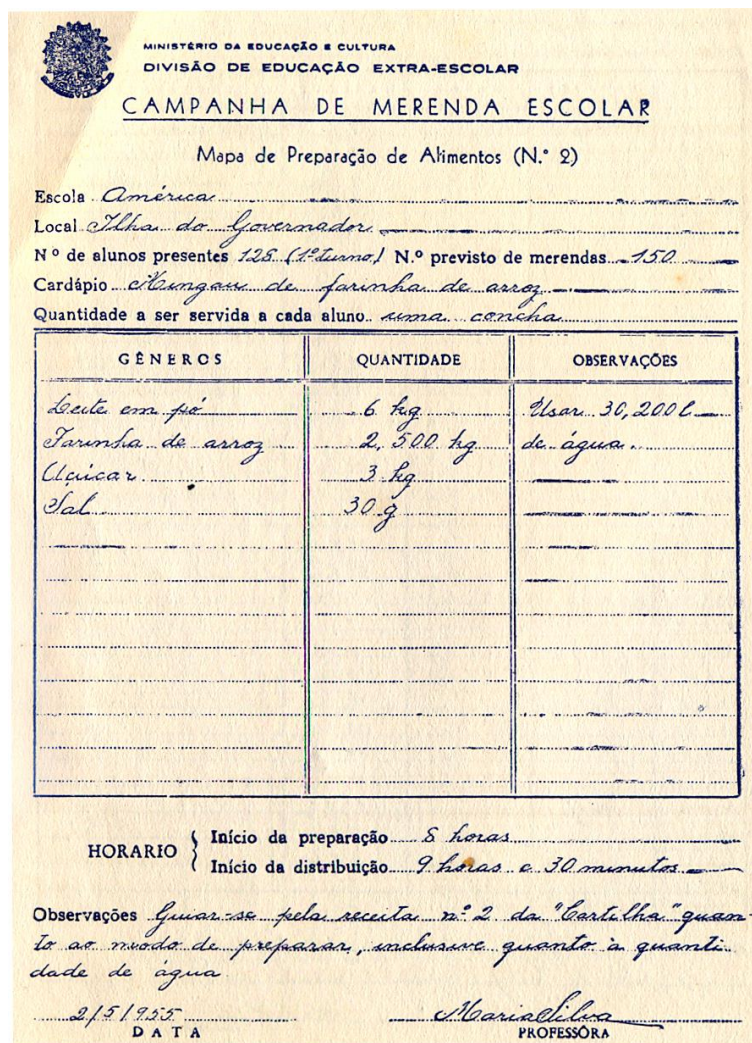 MINISTÉRIO DA EDUCAÇÃO E CULTURA
DIVISÃO DE EDUCAÇÃO EXTRA-ESCOLAR
CAMPANHA DE MERENDA ESCOLAR
Mapa de Preparação de Alimentos (N.º 2)
Escola América
Local Ilha do Governador
Nº de alunos presentes 128 (1º turno) N.º previsto de merendas 150
Cardápio Mingau de farinha de arroz
Quantidade a ser servida a cada aluno uma concha
GÊNEROS QUANTIDADE OBSERVAÇÕES
Leite em pó 6 kg Usar 30,200 l
Farinha de arroz 2,500 kg de água
Açúcar 3 kg
Sal 30 g
HORARIO { Início da preparação 8 horas
Início da distribuição 9 horas e 30 minutos
Observações Guiar-se pela receita nº 2 da "Cartilha" quan-
to ao modo de preparar, inclusive quanto à quanti
dade de água
2/5/955 Maria Silva
DATA PROFESSÔRA